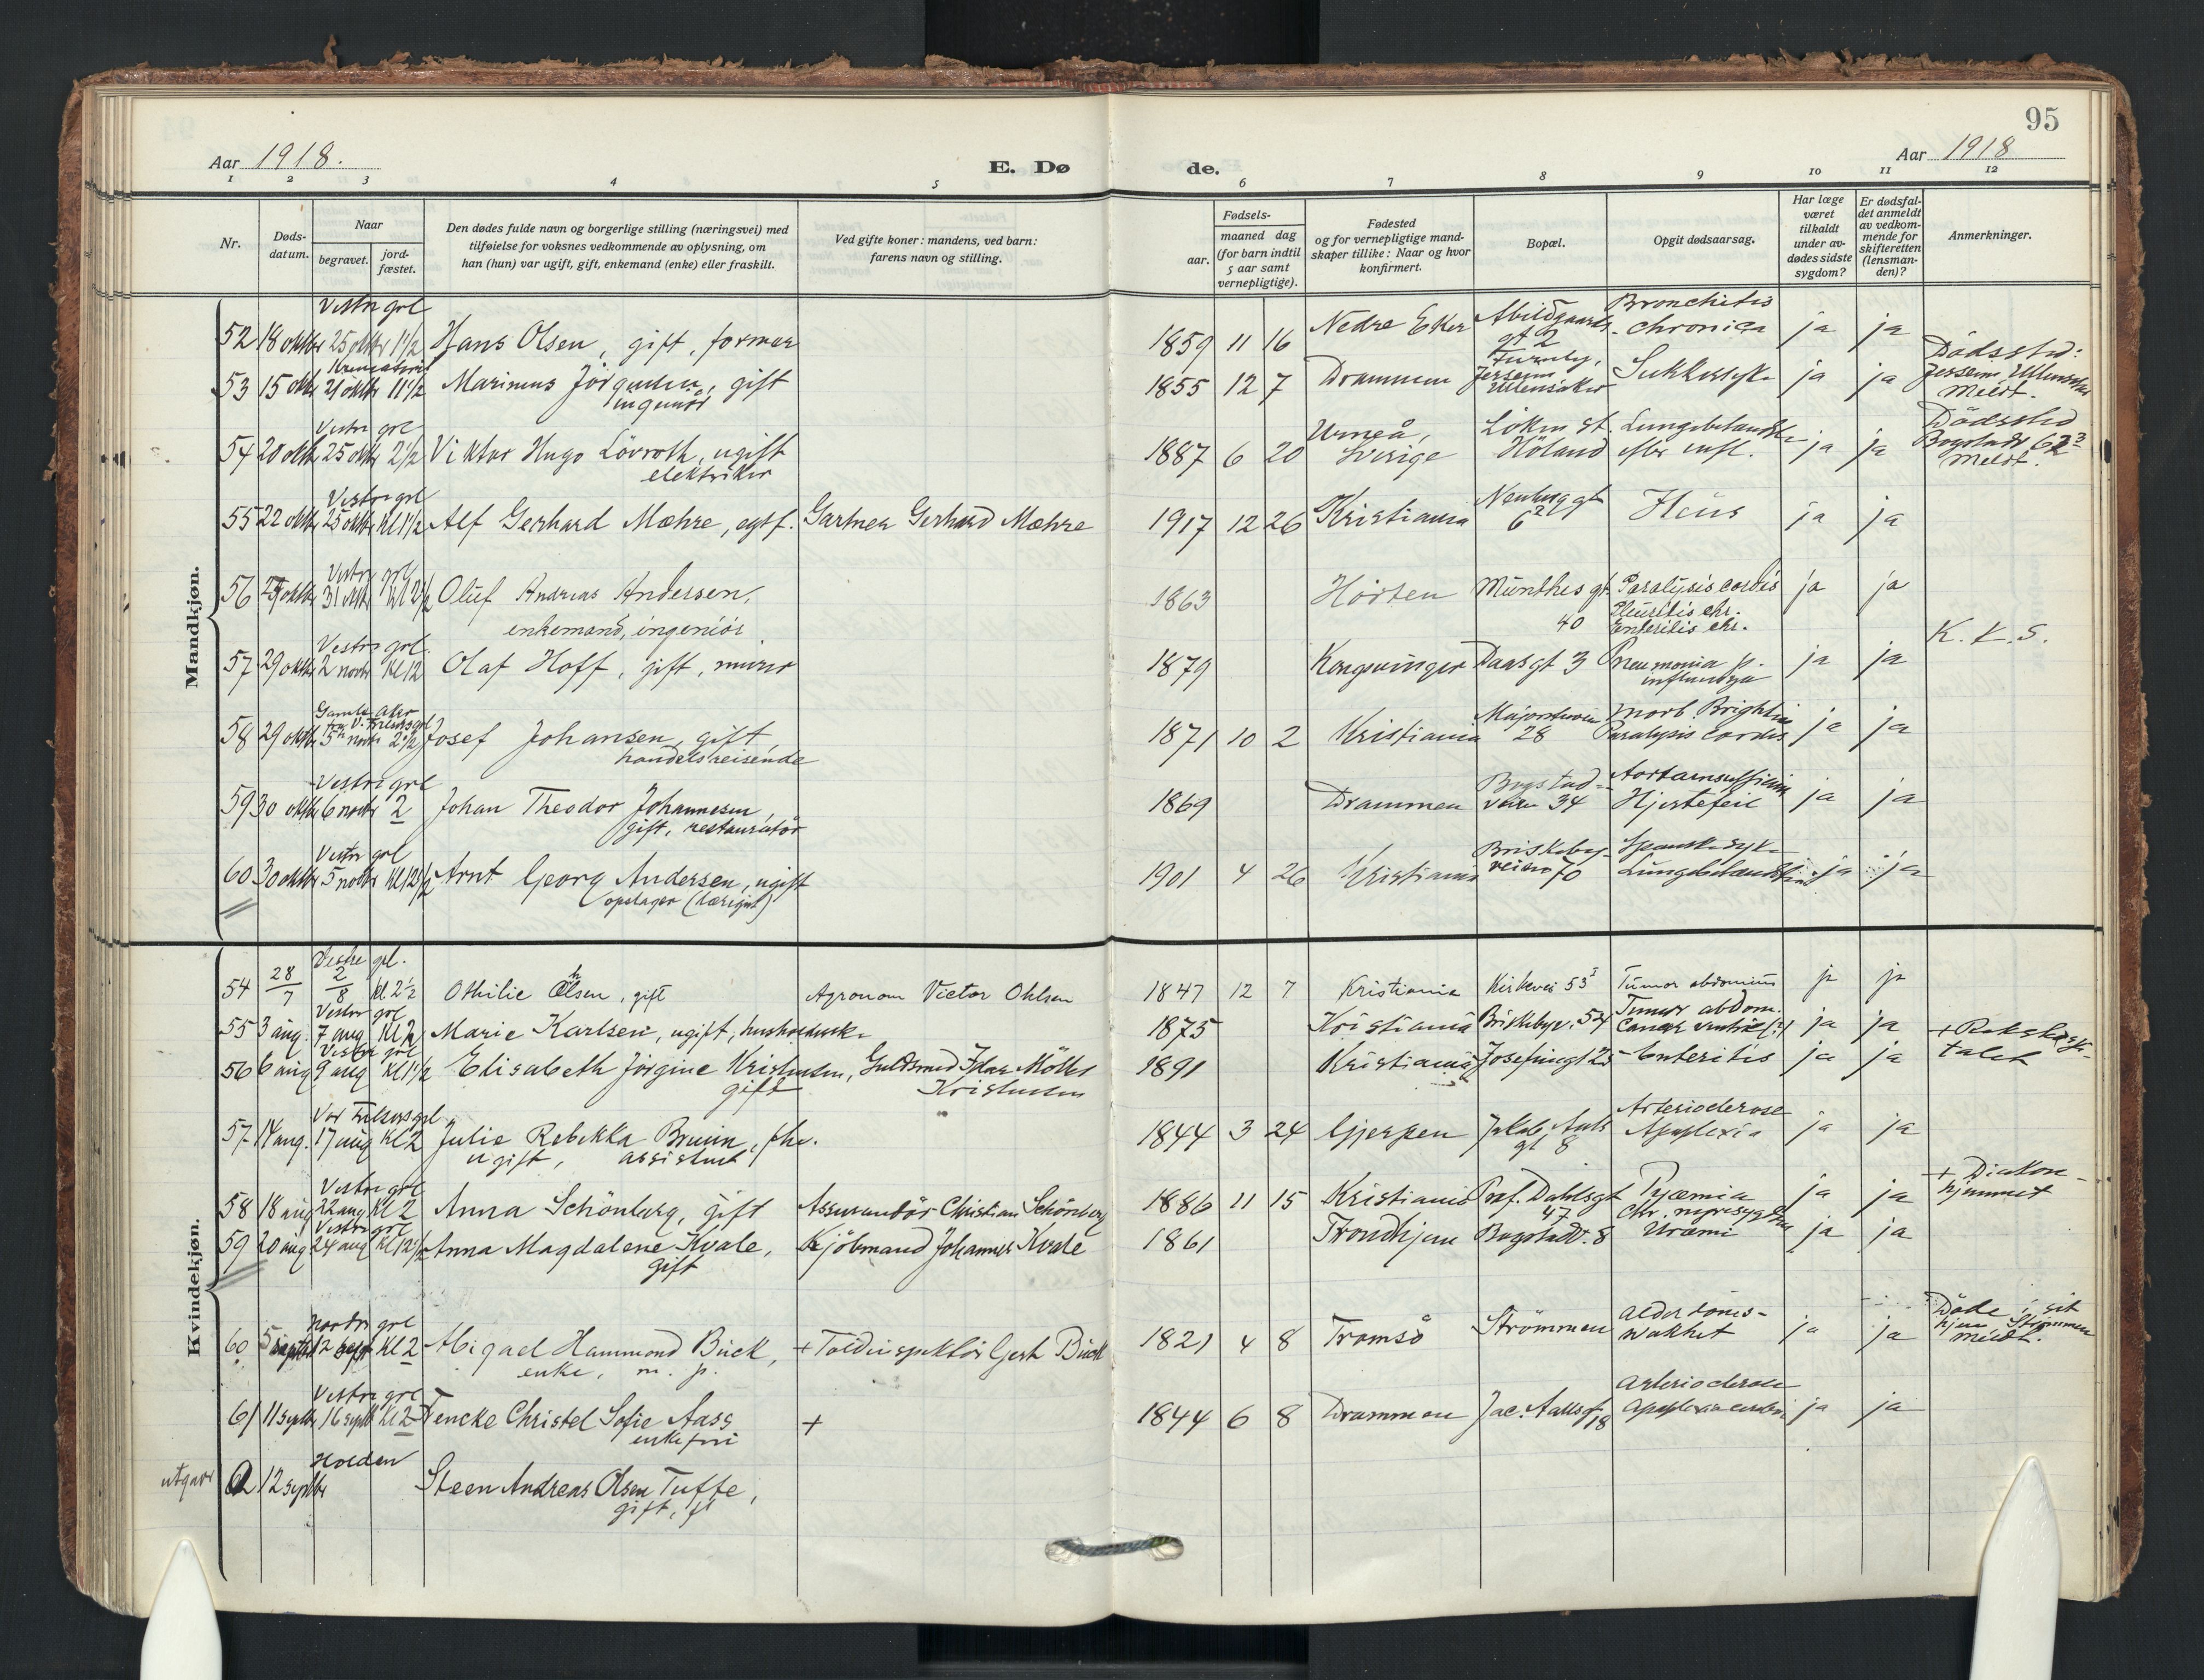 95
Aar 1918.
E. Dø
de.
Aar 1918
1 2 3 4 5 6 7 8 9 10 11 12
Nr.
Døds-
datum.
Naar
begravet.
jord-
fæstet.
Den dødes fulde navn og borgerlige stilling (næringsvei) med
tilføielse for voksnes vedkommende av oplysning, om
han (hun) var ugift, gift, enkemand (enke) eller fraskilt.
Ved gifte koner: mandens, ved barn:
farens navn og stilling.
Fødsels-
aar.
maaned dag
(for barn indtil
5 aar samt
vernepligtige).
Fødested
og for vernepligtige mand-
skaper tillike: Naar og hvor
konfirmert.
Bopæl.
Opgit dødsaarsag.
Har læge
været
tilkaldt
under av-
dødes sidste
sygdom?
Er dødsfal-
det anmeldt
av vedkom-
mende for
skifteretten
(lensman-
den)?
Anmerkninger.
Mandkjøn.
Vestre grl
52 18 oktbr 25 oktbr 1 1/2 Hans Olsen, gift, former 1859 11 16 Nedre Eker Abildgaards gt 2 Bronchitis chronica ja ja
53 15 oktbr 21 oktbr 11 1/2 Marinus Jörgensen, gift 1855 12 7 Drammen Jessheim Ullensaker Sukkersyke ja ja Dödssted: Jessheim Ullensaker
ingeniör
Meldt.
Vestre grl
54 20 oktbr 25 oktbr 2 1/2 Viktor Hugo Lövroth, ugift 1887 6 20 Umeå, Sverige Löken st. Höland Lungebetændelse efter infl. ja ja Dödssted Bogstadv 62 2
elektriker
Meldt.
Vestre grl
55 22 oktbr 25 oktbr kl 1 1/2 Alf Gerhard Mæhre, egtf. Gartner Gerhard Mæhre 1917 12 26 Kristiania Neuberggt 6 2 Ileus ja ja
Vestre grl
56 oktbr 31 oktbr kl 2 1/2 Oluf Andreas Andersen, 1863 Horten Munthes gt 40 Paralysis cordis ja ja
enkemand, ingeniör
Pleuritis chr.
Enteritis chr.
Vestre grl.
57 29 oktbr 2 novbr kl 12 Olaf Hoff, gift, murer 1879 Kongsvinger Daasgt 3 Pneumonia p. influenza ja ja K. K. S.
Gamle Aker
fra V. Frelsers grl
58 29 oktbr 5 novbr 2 1/2 Josef Johansen, gift 1871 10 2 Kristiania Majorstuvei 28 Morb. Brightii Paralysis cordis ja ja
handelsreisende
Vestre grl
59 30 oktbr 6 novbr 2 Johan Theodor Johannesen 1869 Drammen Bogstad-veien 34 Aortainsufficiens Hjertefeil ja ja
gift, restauratör
Vestre grl
60 30 oktbr 5 novbr kl 12 1/2 Arnt Georg Andersen, ugift 1901 4 26 Kristiania Briskeby-veien 70 Spanskesyke Lungebetændelse ja ja
opslager
Kvindekjøn.
Vestre grl.
54 28/7 2/8 kl 2 1/2 Othilie Ohlsen, gift Agronom Victor Ohlsen 1847 12 7 Kristiania Kirkevei 53 I Tumor abdominis ja ja
Vestre grl
55 3 aug. 7 aug kl 2 Marie Karlsen, ugift, 1875 Kristiania Briskebyv. 54 Tumor abdom. Cancer ventric (?) ja ja
Vestre grl
56 6 aug 9 aug kl 1 1/2 Elisabeth Jörgine Kristensen, Guldsmed Möller 1891 Kristiania Josefinegt 25 Enteritis ja ja + Rikshospitalet
gift
Kristensen
Vor Frelsers grl
57 14 aug. 17 aug kl 2 Julie Rebekka Bruun, fhv. 1844 3 24 Gjerpen Jakob Aals gt 8 Arteriosclerose Apoplexia ja ja
ugift, assistent
Vestre grl
58 18 aug 22 aug kl 2 Anna Schönberg, gift Assurandör Christian Schönberg 1886 11 15 Kristiania Prof. Dahlsgt 47 Pyæmia ja ja + Diakon-hjemmet
Vestre grl
59 20 aug 24 aug kl 12 1/2 Anna Magdalene Kvale, Kjöbmand Johannes Kvale 1861 Trondhjem Bogstadv. 8 Chr. nyresygdom Uræmi ja ja
gift
Nordre grl
60 5 septbr 12 sept kl 2 Abigael Hammond Buck, + Toldinspektör Gerh Buck 1821 4 8 Tromsö Strömmen Alderdoms-svakhet ja ja Döde i sit hjem Strömmen
enke, m. p.
Meldt.
Vestre grl
61 11 septbr 16 septbr kl 2 Wencke Christel Sofie Aass + 1844 6 8 Drammen Jac. Aallsgt 18 Arteriosclerose Apoplexia cerebri ja ja
enkefru
Holden
utgaar 62 12 septbr Steen Andreas Olsen Tufte,
gift,